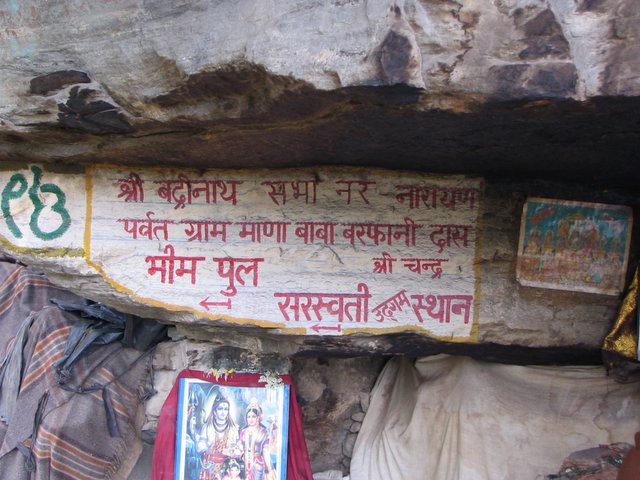 श्री बद्रीनाथ सभा नर नारायण
पर्वत ग्राम माणा बाबा बरफानी दास
भीम पुल श्री चन्द्र
सरस्वती उद्गम स्थान